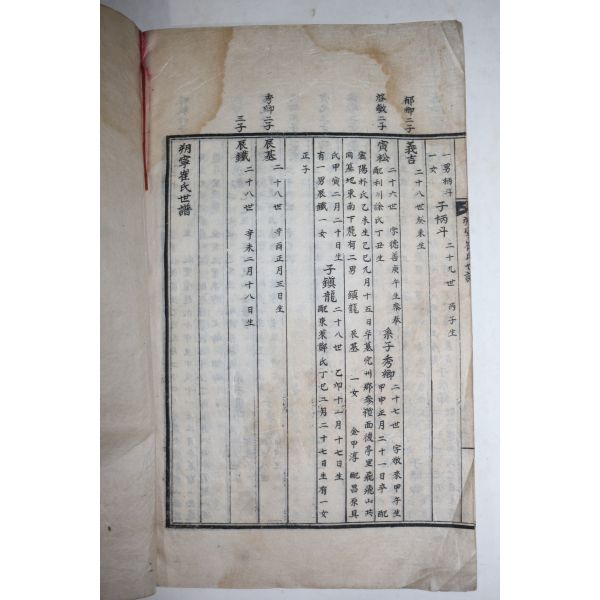 一男炳斗
一女
子炳斗 二十九世 丙子生
郁卿二子 義吉 二十八世 癸未生
啓敬二子 寅松 二十六世 字德善 庚午生 參奉
配利川徐氏 丁丑生
系子秀卿 二十七世 字敬來 甲午生
甲申正月二十一日卒 配
靈陽朴氏 乙未生 乙巳九月十五日卒 墓完州郡參禮面後亭里飛飛山共
同墓地東南下麓 有二男 鎭龍 辰基 一女 金甲淳 配昌原具
氏 甲寅二月二十日生
有一男辰鐵 一女
子鎭龍 二十八世 乙卯十一月十七日生
配東萊鄭氏 丁巳二月二十七日生 有一女
正子
秀卿二子 辰基 二十八世 辛酉正月三日生
三子 辰鐵 二十八世 辛未二月十八日生
朔寧崔氏世譜